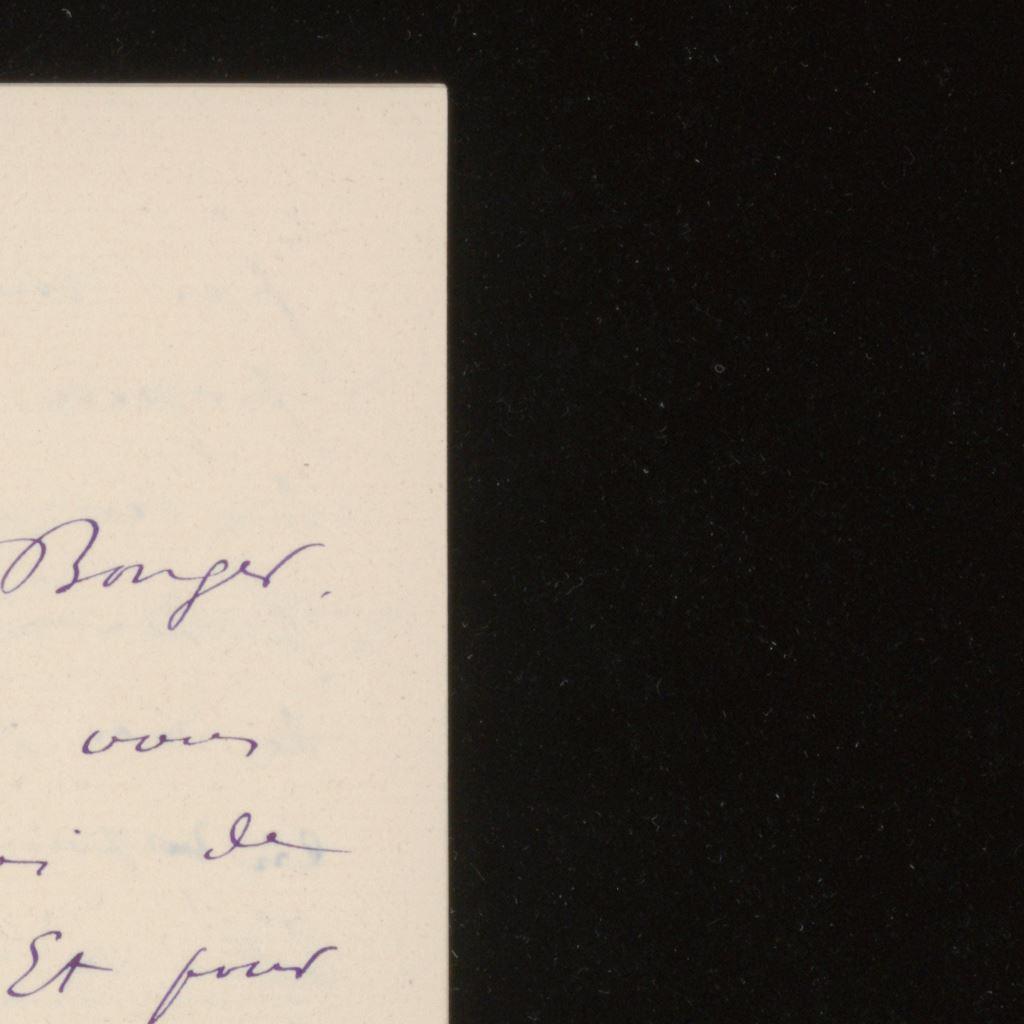 Bonger.
vous
de
Et pour